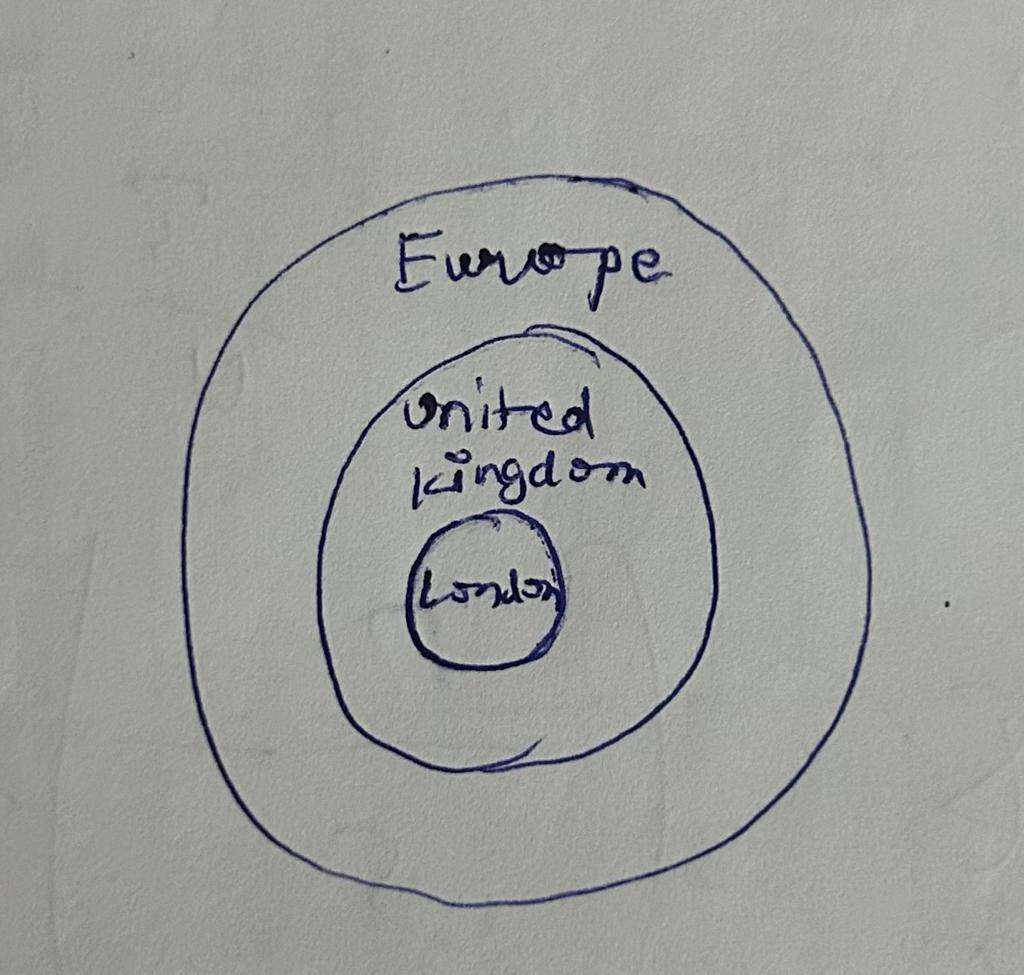 Europe
United
kingdom
London